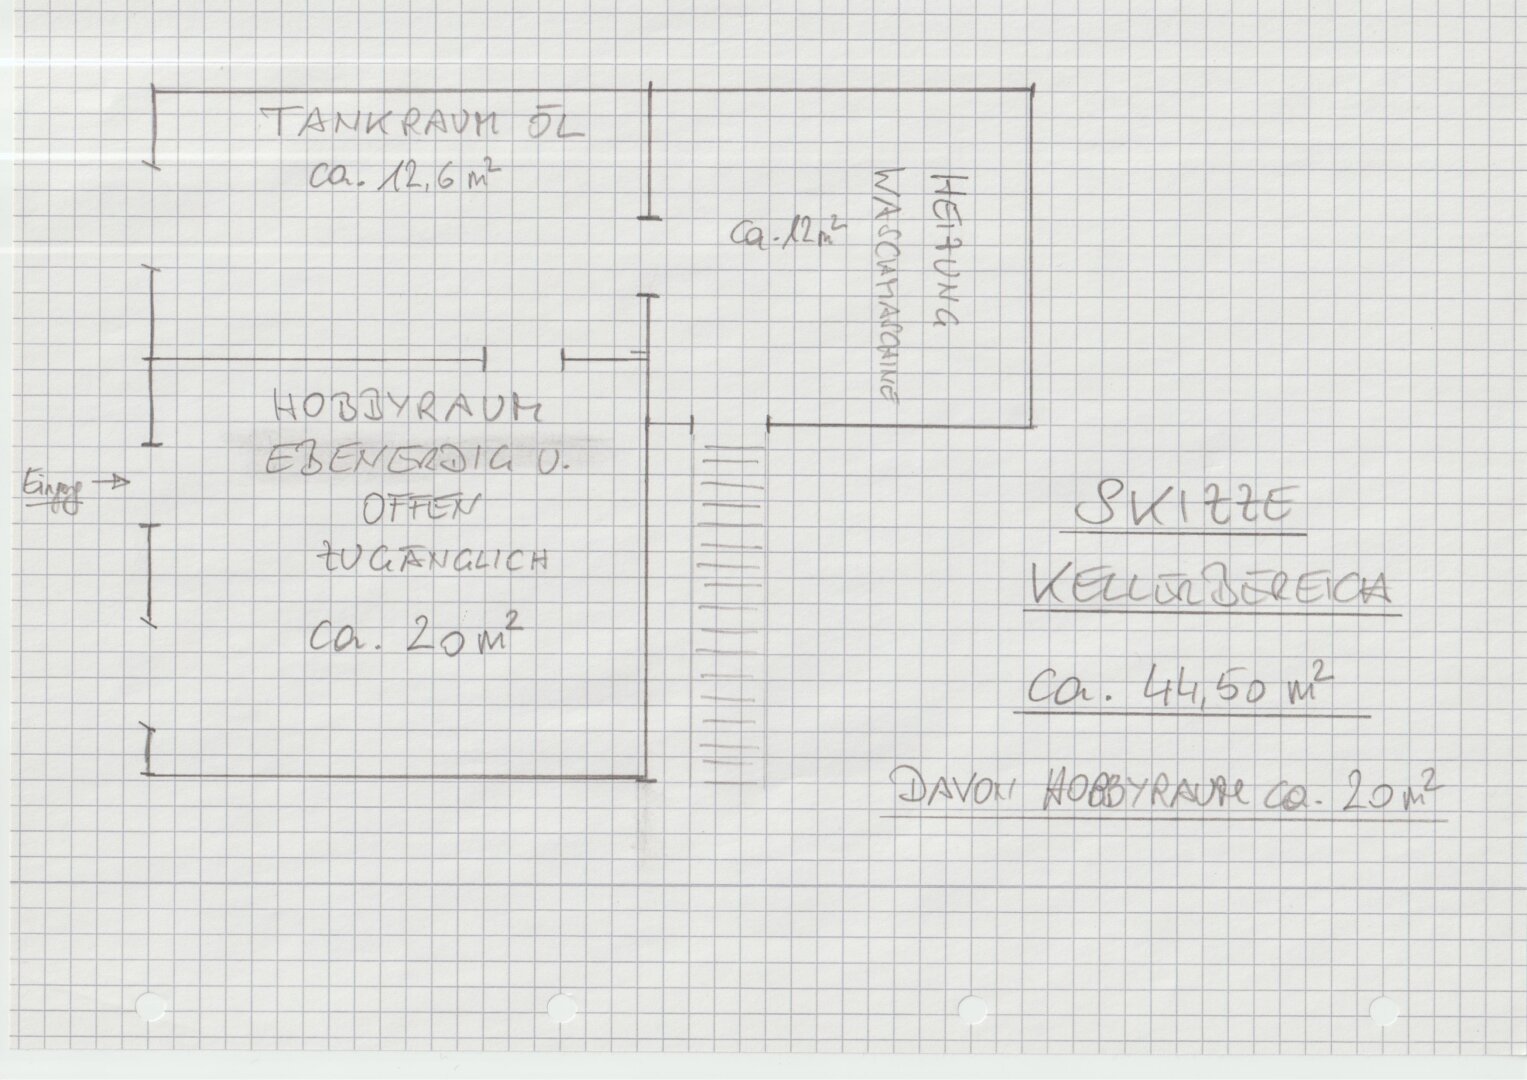 TANKRAUM ÖL
ca. 12,6 m²
ca. 12 m²
HEIZUNG
WASCHMASCHINE
HOBBYRAUM
EBENERDIG U.
OFFEN
ZUGÄNGLICH
ca. 20 m²
SKIZZE
KELLERBEREICH
ca. 44,50 m²
DAVON HOBBYRAUM ca. 20 m²